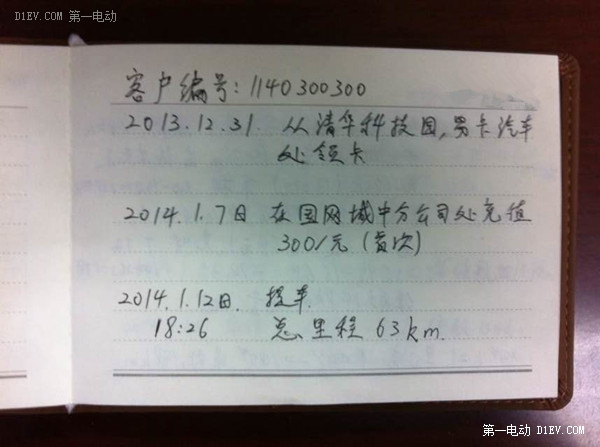 D1EV.COM 第一电动
客户编号:1140300300
2013.12.31. 从清华科技园,易卡汽车
处领卡
2014.1.7日 在国网城中分公司处充值
300/元(首次)
2014.1.12日. 提车.
18:26 总里程 63km.
第一电动 D1EV.COM